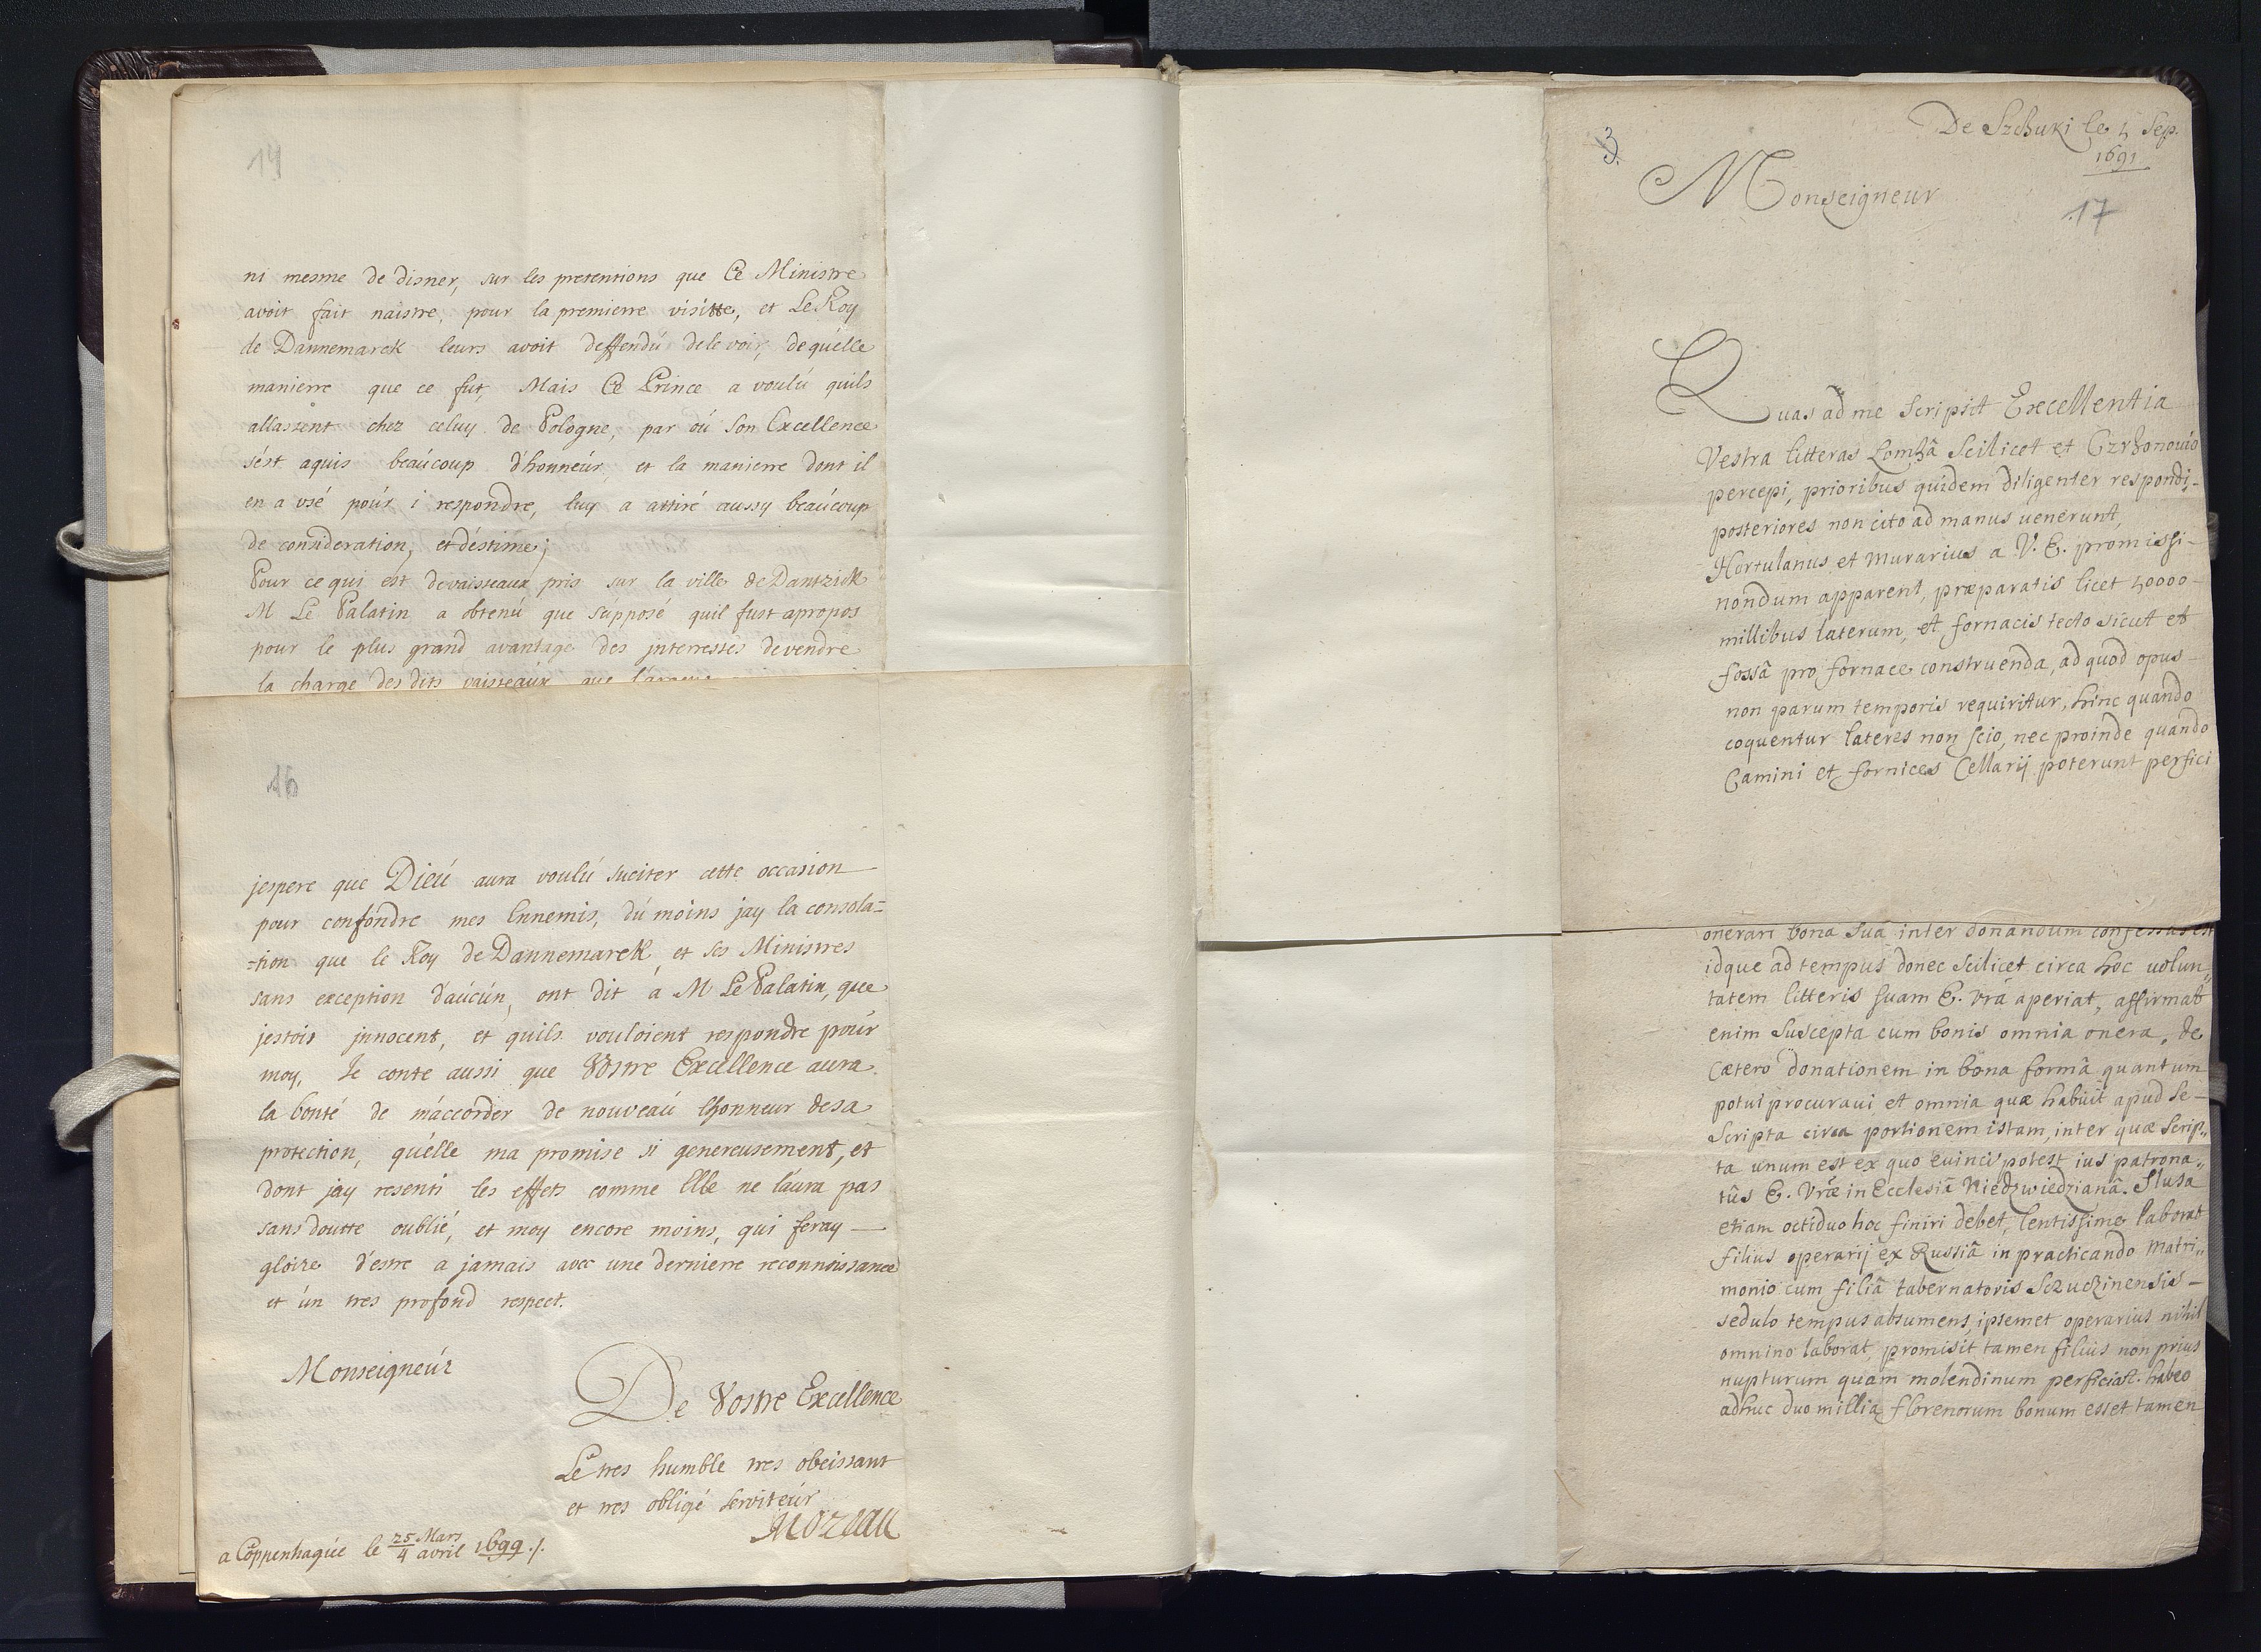 14
ni mesme de disner, sur les pretentions que Ce Ministre
avoit fait naistre, pour la premierre visitte, et Le Roy
de Dannemarck leurs avoit deffendú de le voir, de quélle
manierre que ce fut, Mais Ce Prince a voulú quils
allassent chez celuy de Pologne, par oú Son Excellence
sést aquis beaúcoup d'honneúr, et la manierre dont il
en a vsé poúr i respondre, luy a attiré aussy beaúcoup
de consideration, et déstime;
Pour ce qui ést de vaisseaux pris sur la ville de Dantzick
M Le Palatin a obtenú que supposé quil fust apropos
pour le plus grand avantage des jnterressés de vendre
la charge des dits vaisseaúx que
16
jespere que Dieú aura voulú suciter cette occasion
pour confondre mes Ennemis, dú moins jay la consola=
=tion que le Roy de Dannemarck et ses Ministres
sans exception d'aúcún, ont dit á M Le Palatin, que
jestois jnnocent, et quils vouloient respondre poúr
moy, Je conte aussi que Vostre Excellence aura
la bonté de m'accorder de nouveaú lhonneur de sa
protection, qu'elle ma promise si genereusement, et
dont jay resenti les effets comme Elle ne l'aura pas
sans doutte oublié, et moy encore moins, qui feray
gloire d'estre a jamais avec une dernierre reconnoissance
et ún tres profond respect.
Monseigneúr
De Vostre Excellence
Le tres humble tres obeissant
et tres obligé serviteúr
Moreau
a Coppenhagúe le 25 Mars / 4 avril 1699 ./.
3
De Szczuki le 4 Sep.
1691
Monseigneur
17
Quas ad me scripsit Excellentia
Vestra litteras Lomzâ Scilicet et
percepi, prioribus quidem diligenter respondi,
posteriores non cito ad manus uenerunt,
Hortulanus et murarius a V. E. promissi
nondum apparent, præparatis licet 40000
millibus laterum, et fornacis tecto sicut et
fossâ pro fornace construenda, ad quod opus
non parum temporis requiritur, hinc quando
coquentur lateres non scio, nec proinde quando
Camini et fornices Cellarij poterunt perfici
onerari bona sua inter donandum confessus est
idque ad tempus donec scilicet circa hoc uolun,,
tatem litteris suam E. vrã aperiat, affirmat
enim suscepta cum bonis omnia onera, de
Cætero donationem in bona formâ quantum
potui procuraui et omnia quæ habuit apud se
scripta circa portionem istam, inter quæ scrip,,
ta unum est ex quo euinci potest ius patrona,,
tûs E. Vræ in Ecclesiâ Niedzwiedzianâ. Slusa
etiam octiduo hoc finiri debet, lentissime laborat
filius operarij ex Russiâ in practicando matri,,
monio cum filiâ tabernatoris Sczuczinensis
sedulo tempus absumens, ipsemet operarius nihil
omnino laborat, promisit tamen filius non prius
nupturum quam molendinum perficiat. habeo
adhuc duo millia florenorum bonum esset tamen